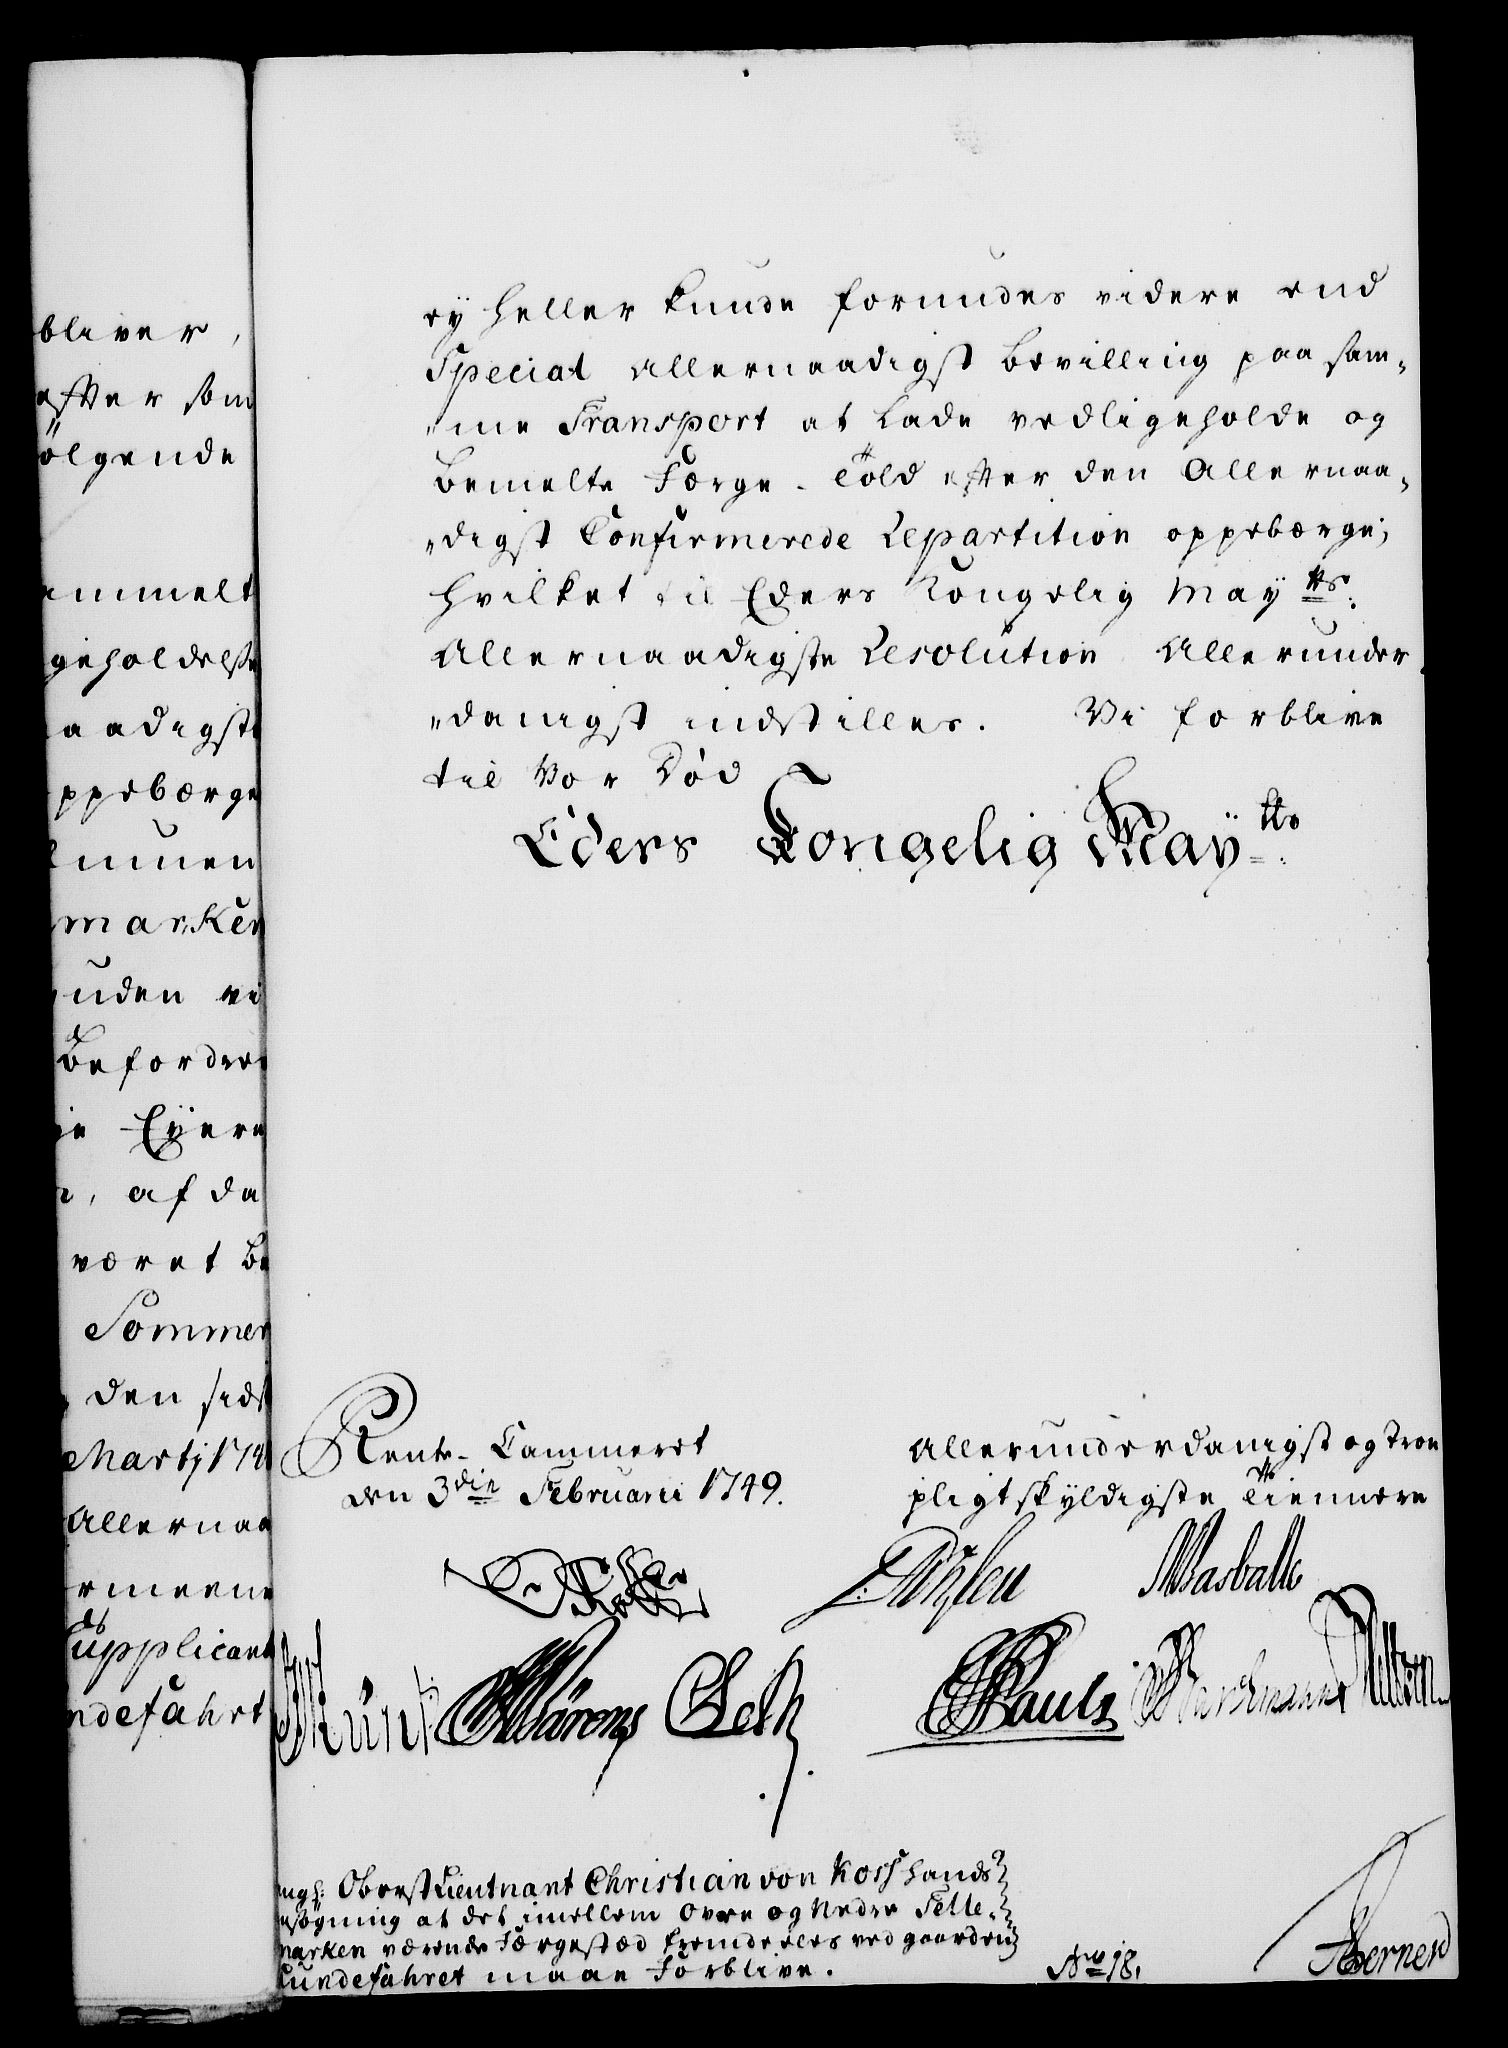 bliver,
efter som
ölgende
ammelt
geholdelse
aadigste
ppebærge
unen
marken
uden vi
Befordre
ie Eyere
, af da
været Be
Sommer
den sidst
Martj 174
Allernaa
rmeene
Supplicant
ndefahrt
ey heller kunde formudes videre end
Special Allernaadigst bevilling paa sam-
"me Transport at lade vedligeholde og
bemelte Færge-Told efter den Allernaa-
"digst Confirmerede Repartition oppebærge;
hvilket til Eders Kongelig Mayts:
Allernaadigste Resolution Allerunder
"danigst indstilles. Vi forblive
til Vor Død
Eders Kongelig Maytts:
Rente-Cammeret
den 3die Februarii 1749.
Allerunderdanigst og Troe
pligtskyldigste Tiennere
Masballe
Pauls
angh: OberstLieutnant Christian von Koss hands
nsøgning at det imellem Øvre og Neder Telle-
marken værende Færgestæd fremdeeles ved gaarden
Sundefahret maae Forblive.
No 18.
Berner